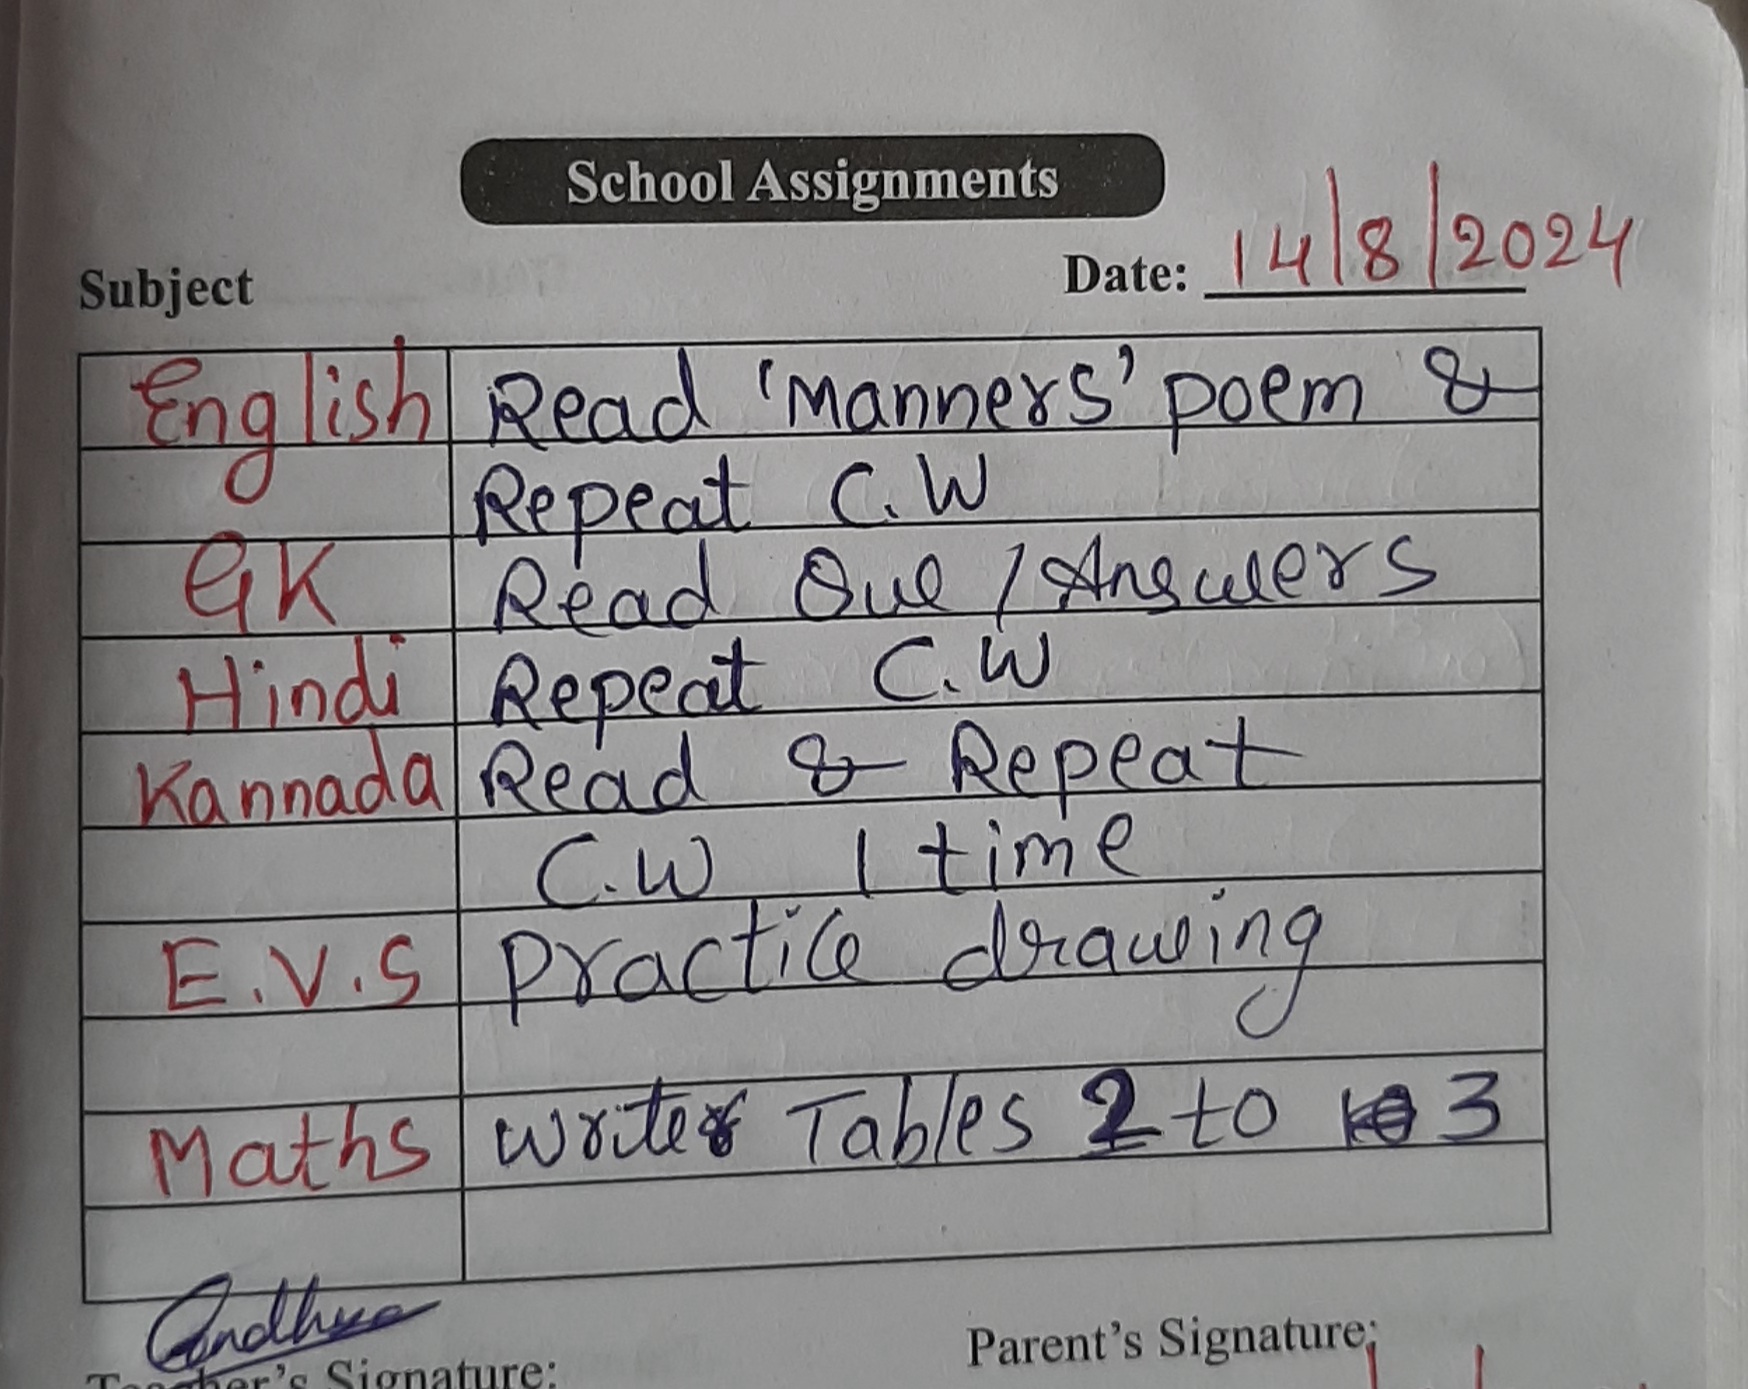 School Assignments
Subject Date: 14/8/2024
English Read 'Manners' poem &
Repeat C.W
GK Read Que / Answers
Hindi Repeat C.W
Kannada Read & Repeat
C.W 1 time
E.V.S Practice drawing
Maths Write Tables 2 to 3
Teacher's Signature: Parent's Signature: